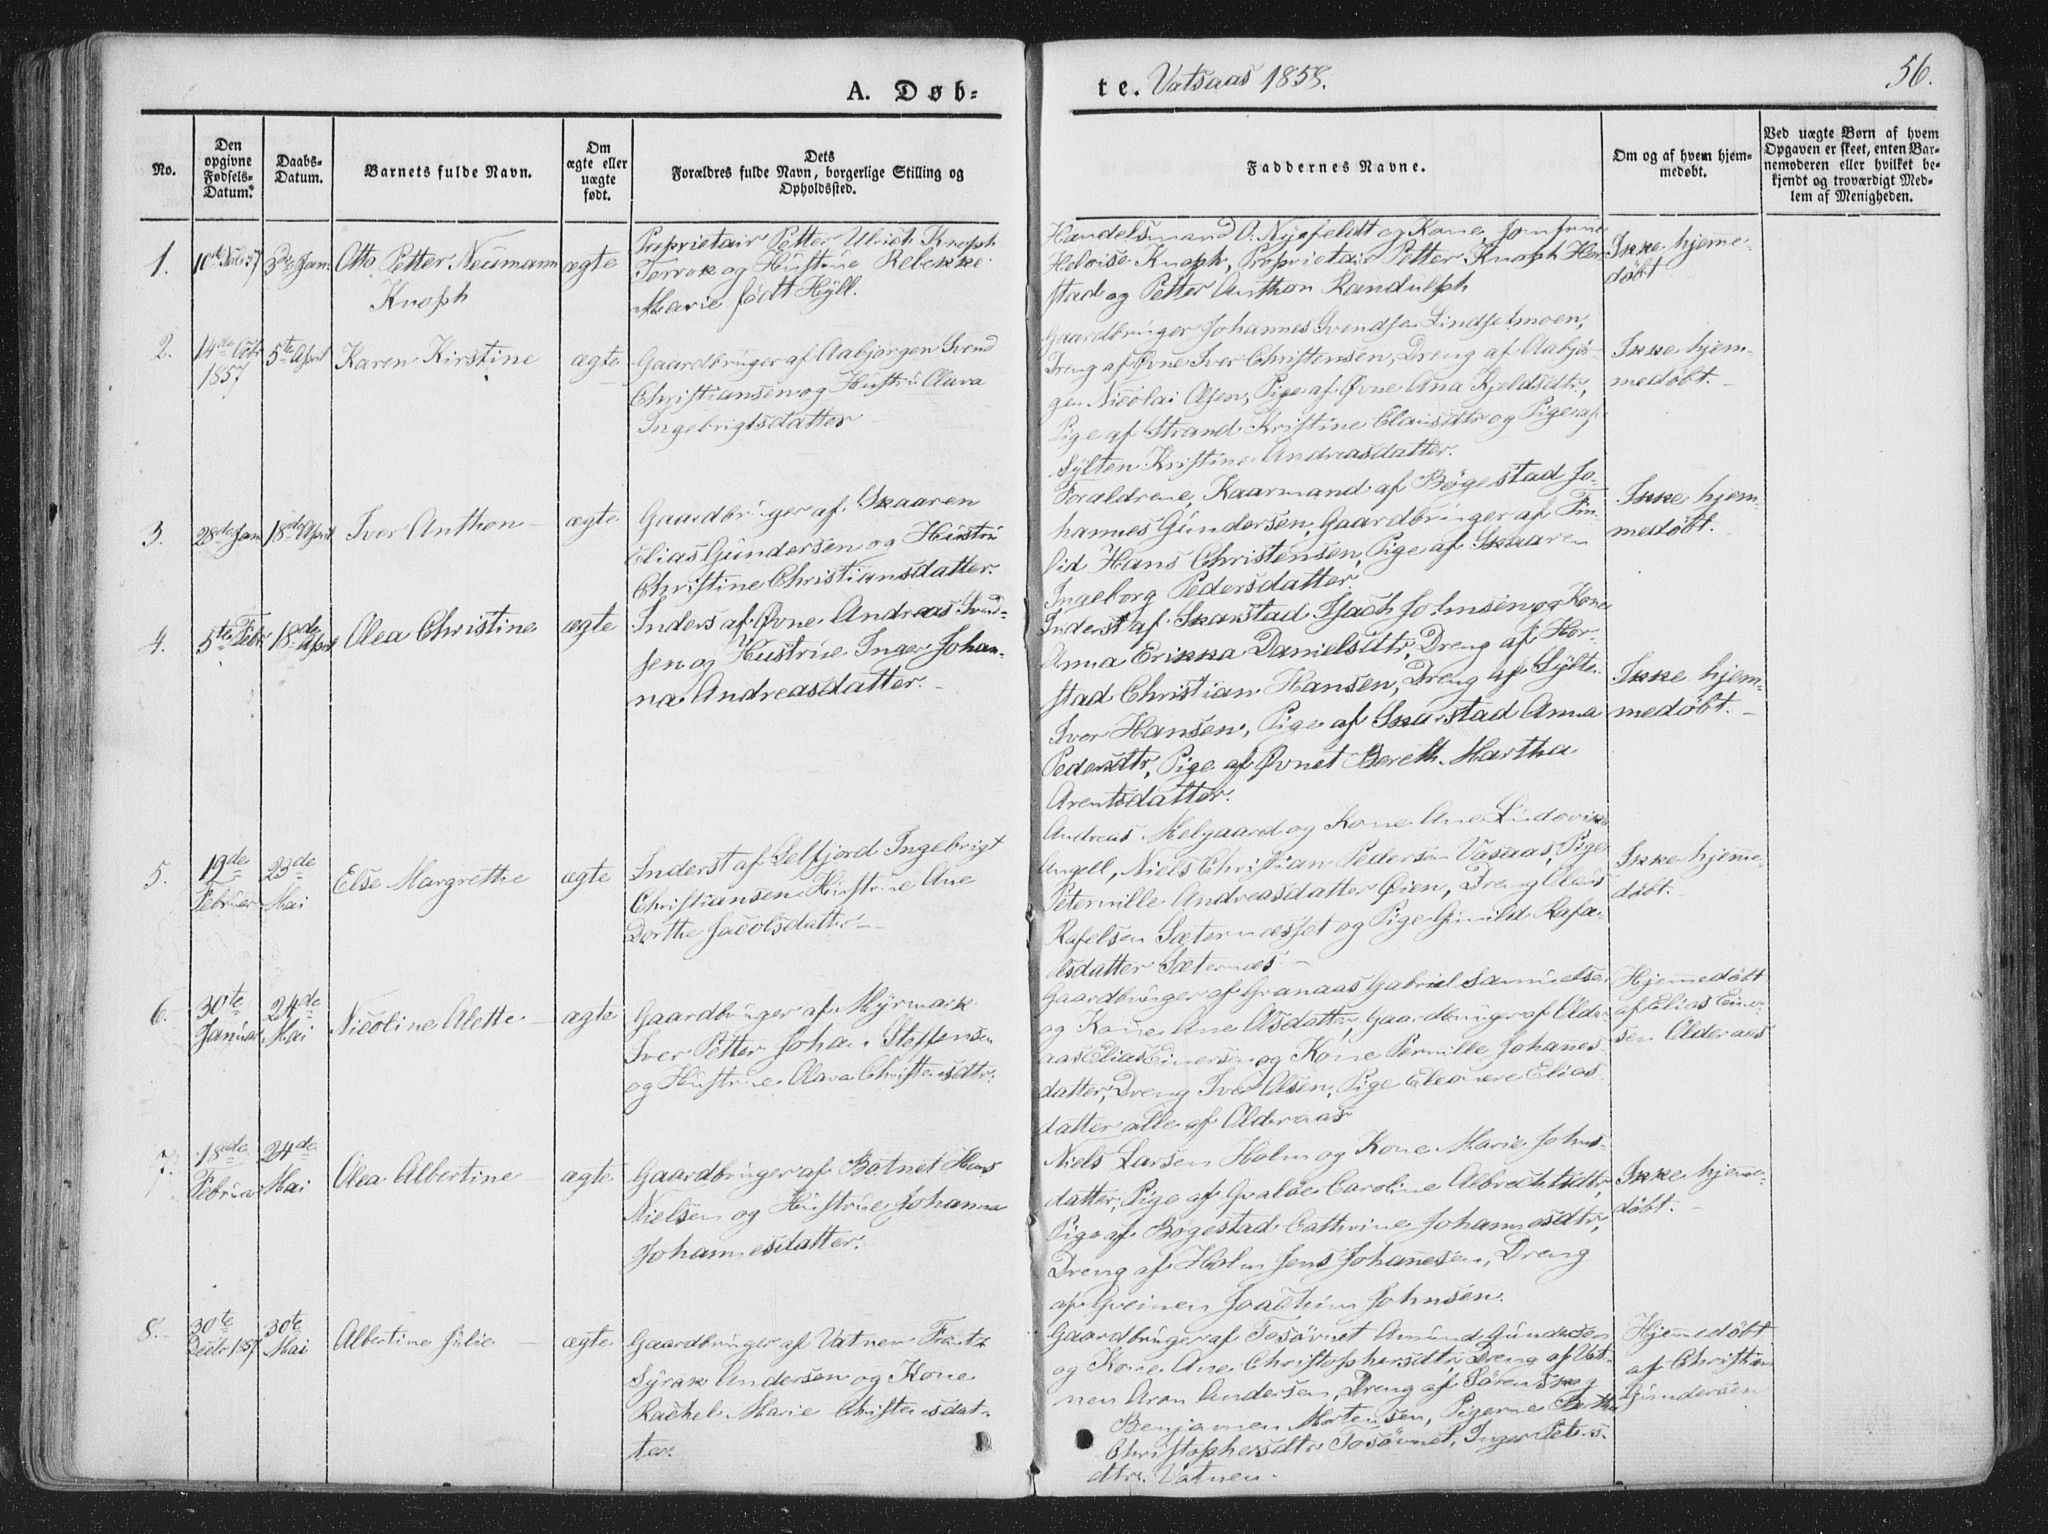 A. Døb-
te. Vatsaas 1858.
56.
No.
Den opgivne Fødsels-Datum.
Daabs-Datum.
Barnets fulde Navn.
Om ægte eller uægte født.
Dets Forældres fulde Navn, borgerlige Stilling og Opholdssted.
Faddernes Navne.
Om og af hvem hjem-medøbt.
Ved uægte Børn af hvem Opgaven er skeet, enten Bar-nemoderen eller hvilket be-kjendt og troværdigt Med-lem af Menigheden.
1.
3de Jan
Otto Petter Neumann
Knoph
ægte
Proprietair Petter Ulrich Knoph
Terrok og Hustrue Rebekke
Marie født Hÿll.
Handelsmand O. Nyefeldt og Kone
Heloise Knoph, Proprietair Petter Knoph Hor
stad og Petter Anthon Randulph
Ikke hjeme-
døbt
2.
14de Octr
1857
5te April
Karen Kirstine
ægte
Gaardbruger af Aabjørgen Svend
Christiansen og Hustru Olava
Ingebrigtsdatter
Gaardbruger Johannes Svendsen Lindsetmoen,
Dreng af Øvne Iver Christensen, Dreng af Aabjør-
gen Nicolai Olsen, Pige af Øvne Ana Kjeldsdtr,
Pige af Strand Kristine Claisdtr og Pige af
Sÿlten Kristine Andreasdatter.
Ikke hjem-
medøbt.
3.
28de Jan
18de April
Iver Anthon
ægte
Gaardbruger af Skaaren
Elias Gundersen og Hustru
Christine Christiansdatter.
Forældrene, Kaarmand af Bøgestad Jo-
hannes Gundersen, Gaardbruger af Fin
lid Hans Christensen, Pige af Skaaren
Ingeborg Pedersdatter.
Ikke hjem-
medøbt.
4.
5te Febr
18de April
Olea Christine
ægte
Inderst af Øvne Andreas Svend-
sen og Hustrue Inger Johan-
na Andreasdatter.
Inderst af Skarstad Isach Johnsen og Kone
Anna Erikka Danielsdtr, Dreng af Hor-
stad Christian Hansen, Dreng af Sÿlte
Iver Hansen, Pige af Skarstad Anna
Pedersdtr, Pige af Øvnet Bereth Martha
Arentsdatter.
Ikke hjem-
medøbt.
5.
19de
Februar
23de
Mai
Else Margrethe
ægte
Inderst af Selfjord Ingebrigt
Christiansen Hustrue Ane
Dorthe Jacobsdatter
Andreas Melgaard og Kone Ane Ludovika
Angell, Niels Christian Pedersen Vasaas, Pige
Peternille Andreasdatter Øien, Dreng Claus
Rafelsen Sæternæsset og Pige Gunild Rafa-
elsdatter Sæternæs.
Ikke hjeme-
døbt.
6.
30te
Januar
24de
Mai
Nicoline Alette
ægte
Gaardbruger af Mÿrmark
Iver Petter Johan Steffensen
og Hustrue Olava Christensdtr.
Gaardbruger af Granaas Gabriel Samuelsen
og Kone Ane Olsdatter, Gaardbruger af Older
aas Elias Einersen og Kone Pernille Johanes-
datter, Dreng Iver Olsen, Pige Eleonore Elias-
datter alle af Olderaas
Hjemmedøbt
af Elias Einer-
sen Olderaas
7.
18de
Februar
24de
Mai
Olea Albertine
ægte
Gaardbruger af Botnet Hans
Nielsen og Hustrue Johanna
Johannesdatter.
Niels Larsen Holm og Kone Marie Johns-
datter, Pige af Qvaløe Caroline Albrechtsdtr,
Pige af Bogestad Cathrine Johannesdtr,
Dreng af Holm Jens Johanesen, Dreng
af Qveinen Joachim Johnsen.
Ikke hjeme-
døbt.
8.
30te
Decbr 1857
30te
Mai
Albertine Julie
ægte
Gaardbruger af Vatnen Frantz
Sÿrak Andersen og Kone
Rachel Marie Christensdat-
ter.
Gaardbruger af Tosøvnet Amund Gundersen
og Kone Ane Christophersdtr, Dreng af Vat-
nen Aron Andersen, Dreng af
Benjamen Mortensen, Pigerne
Christophersdtr Tosøvnet, Inger Peters-
dtr. Vatnen.
Hjemmedøbt
af Christian
Gundersen